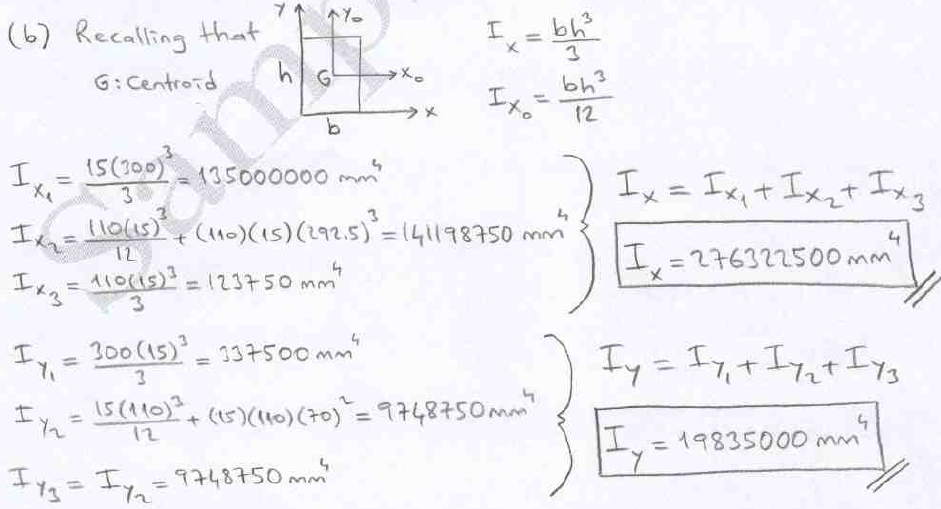 (b) Recalling that
G: Centroid
y y₀ h G x₀ b x
I_x = bh³/3
I_x₀ = bh³/12
I_x₁ = 15(300)³/3 = 135000000 mm⁴
I_x₂ = 110(15)³/12 + (110)(15)(292.5)³ = 141198750 mm⁴
I_x₃ = 110(15)³/3 = 123750 mm⁴
I_x = I_x₁ + I_x₂ + I_x₃
I_x = 276322500 mm⁴
I_y₁ = 300(15)³/3 = 337500 mm⁴
I_y₂ = 15(110)³/12 + (15)(110)(70)² = 9748750 mm⁴
I_y₃ = I_y₂ = 9748750 mm⁴
I_y = I_y₁ + I_y₂ + I_y₃
I_y = 19835000 mm⁴
Samp